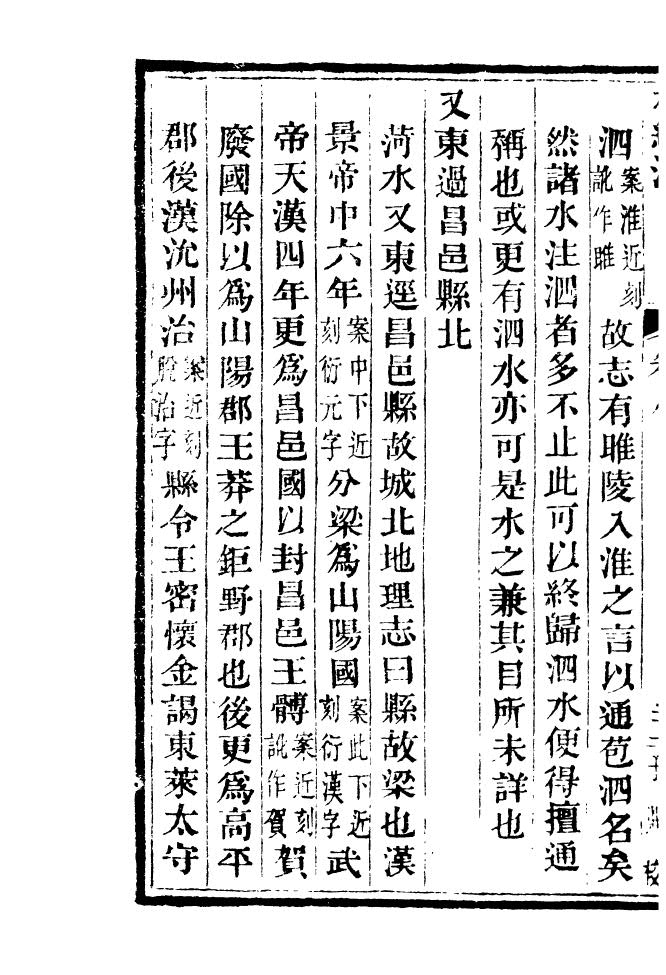 泗案淮近刻訛作睢故志有睢陵入淮之言以通苞泗名矣
然諸水注泗者多不止此可以終歸泗水便得擅通
稱也或更有泗水亦可是水之兼其目所未詳也
又東過昌邑縣北
菏水又東逕昌邑縣故城北地理志曰縣故梁也漢
景帝中六年案中下近刻衍元字分梁爲山陽國案此下近刻衍漢字武
帝天漢四年更爲昌邑國以封昌邑王髆案近刻訛作賀賀
廢國除以爲山陽郡王莽之鉅野郡也後更爲高平
郡後漢沇州治案近刻脫治字縣令王密懷金謁東萊太守